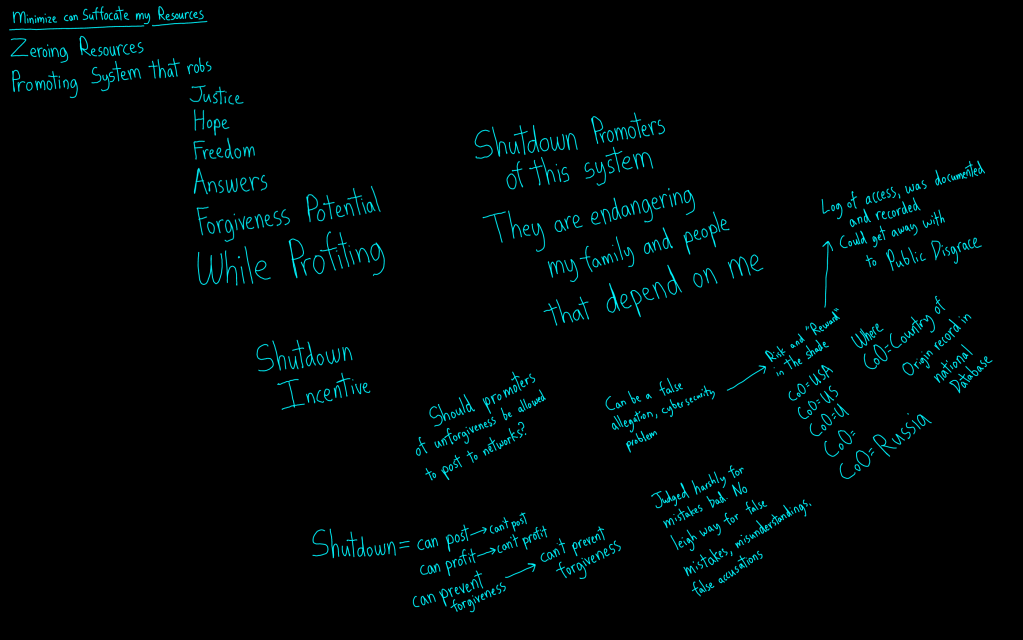 Minimize can Suffocate my Resources
Zeroing Resources
Promoting System that robs
Justice
Hope
Freedom
Answers
Forgiveness Potential
While Profiting
Shutdown
Incentive
Shutdown Promoters
of this system
They are endangering
my family and people
that depend on me
Should promoters
of unforgiveness be allowed
to post to networks?
Can be a false
allegation, cybersecurity
problem
Risk and "Reward"
in the shade
CoO=USA
CoO=US
CoO=U
CoO=
CoO=Russia
Where
CoO=Country of
Origin record in
national
Database
Log of access, was documented
and recorded
Could get away with
to Public Disgrace
Shutdown = can post→can't post
can profit→can't profit
can prevent
forgiveness→can't prevent
forgiveness
Judged harshly for
mistakes bad. No
leigh way for false
mistakes, misunderstandings.
false accusations